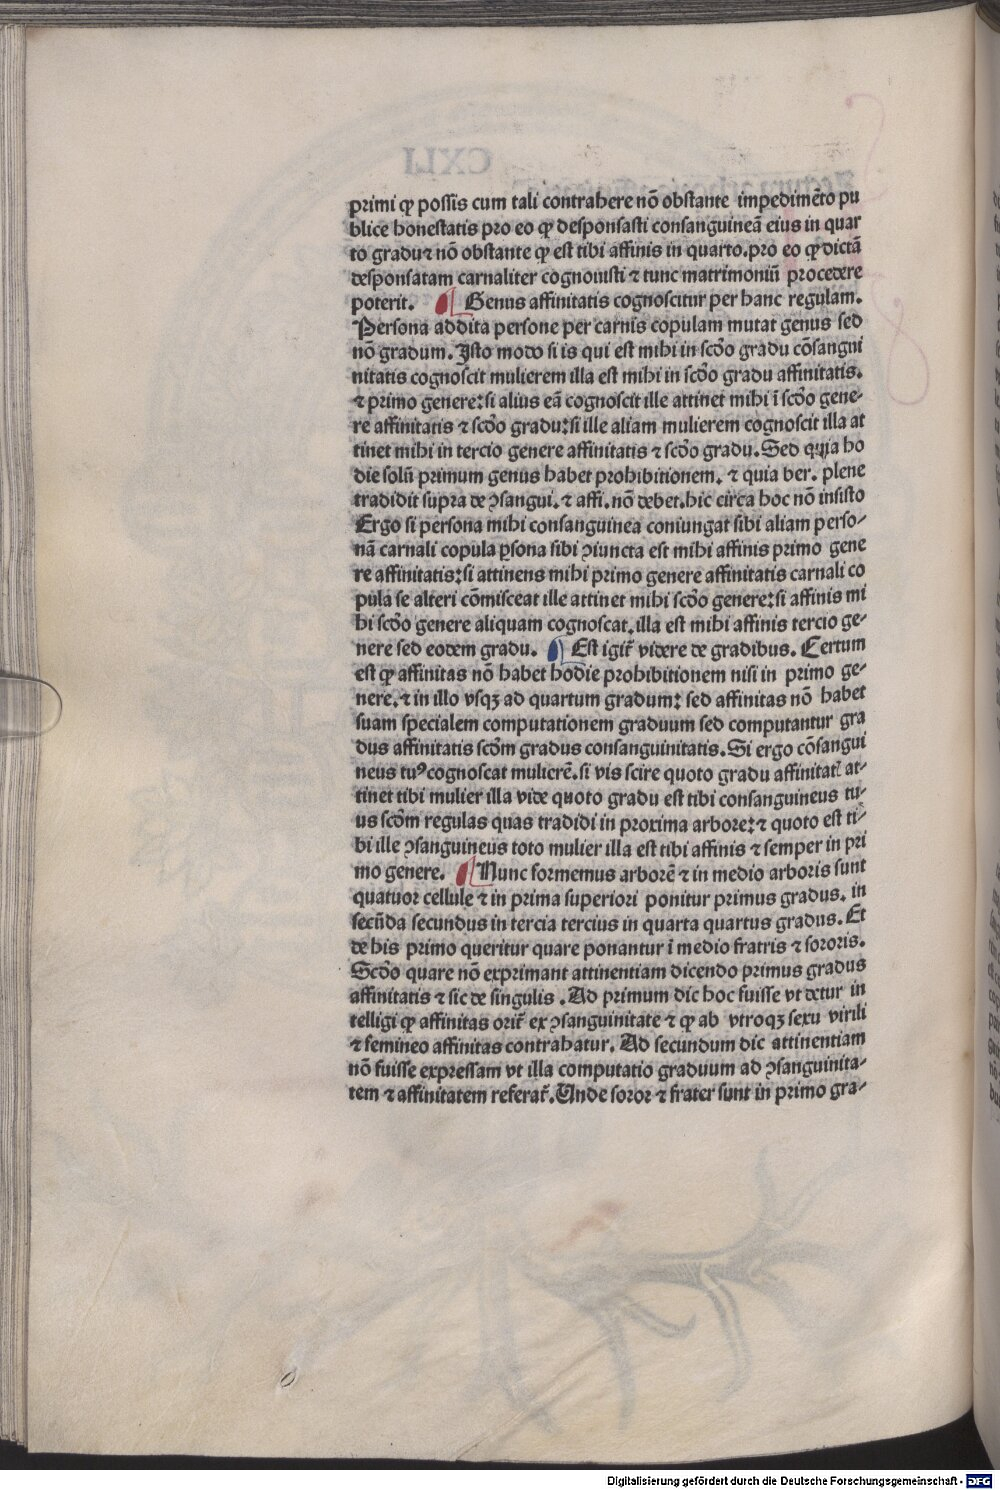 primi qꝫ possis cum tali contrahere nō obstante impedimēto pu
blice honestatis pro eo ꝙ desponsasti consanguineā eius in quar
to gradu⁊ nō obstante ꝙ est tibi affinis in quarto.pro eo ꝙ dictā
desponsatam carnaliter cognouisti ⁊ tunc matrimoniū procedere
poterit. ¶ Genus affinitatis cognoscitur per hanc regulam.
Persona addita persone per carnis copulam mutat genus sed
nō gradum. Isto modo si is qui est mihi in scđo gradu cōsangui
nitatis cognoscit mulierem illa est mihi in scđo gradu affinitatis.
⁊ primo genere:si alius eā cognoscit ille attinet mihi ī scđo gene-
re affinitatis ⁊ scđo gradu:si ille aliam mulierem cognoscit illa at
tinet mihi in tercio genere affinitatis ⁊ scđo gradu. Sed quia ho
die solū primum genus habet prohibitionem. ⁊ quia ber. plene
tradidit supra de ꝯsangui. ⁊ affi. nō debet.hic circa hoc nō insisto
Ergo si persona mihi consanguinea coniungat sibi aliam perso-
nā carnali copula ꝑsona sibi ꝯiuncta est mihi affinis primo gene
re affinitatis:si attinens mihi primo genere affinitatis carnali co
pula se alteri cōmisceat ille attinet mihi scđo genere:si affinis mi
hi scđo genere aliquam cognoscat.illa est mihi affinis tercio ge-
nere sed eodem gradu. ¶ Est igit̄ videre de gradibus. Certum
est ꝙ affinitas nō habet hodie prohibitionem nisi in primo ge-
nere.⁊ in illo vsqꝫ ad quartum gradum: sed affinitas nō habet
suam specialem computationem graduum sed computantur gra
dus affinitatis scđm gradus consanguinitatis. Si ergo cōsangui
neus tuꝰ cognoscat mulierē.si vis scire quoto gradu affinitatꝭ at-
tinet tibi mulier illa vide quoto gradu est tibi consanguineus tu-
us scđm regulas quas tradidi in proxima arbore:⁊ quoto est ti-
bi ille ꝯsanguineus toto mulier illa est tibi affinis ⁊ semper in pri
mo genere. ¶ Nunc formemus arborē ⁊ in medio arboris sunt
quatuor cellule ⁊ in prima superiori ponitur primus gradus. in
secūda secundus in tercia tercius in quarta quartus gradus. Et
de his primo queritur quare ponantur ī medio fratris ⁊ sororis.
Scđo quare nō exprimant attinentiam dicendo primus gradus
affinitatis ⁊ sic de singulis . Ad primum dic hoc fuisse vt detur in
telligi ꝙ affinitas orit̄ ex ꝯsanguinitate ⁊ ꝙ ab vtroqꝫ sexu virili
⁊ femineo affinitas contrahatur. Ad secundum dic attinentiam
nō fuisse expressam vt illa computatio graduum ad ꝯsanguinita-
tem ⁊ affinitatem referat̄. Unde soror ⁊ frater sunt in primo gra-
Digitalisierung gefördert durch die Deutsche Forschungsgemeinschaft - DFG